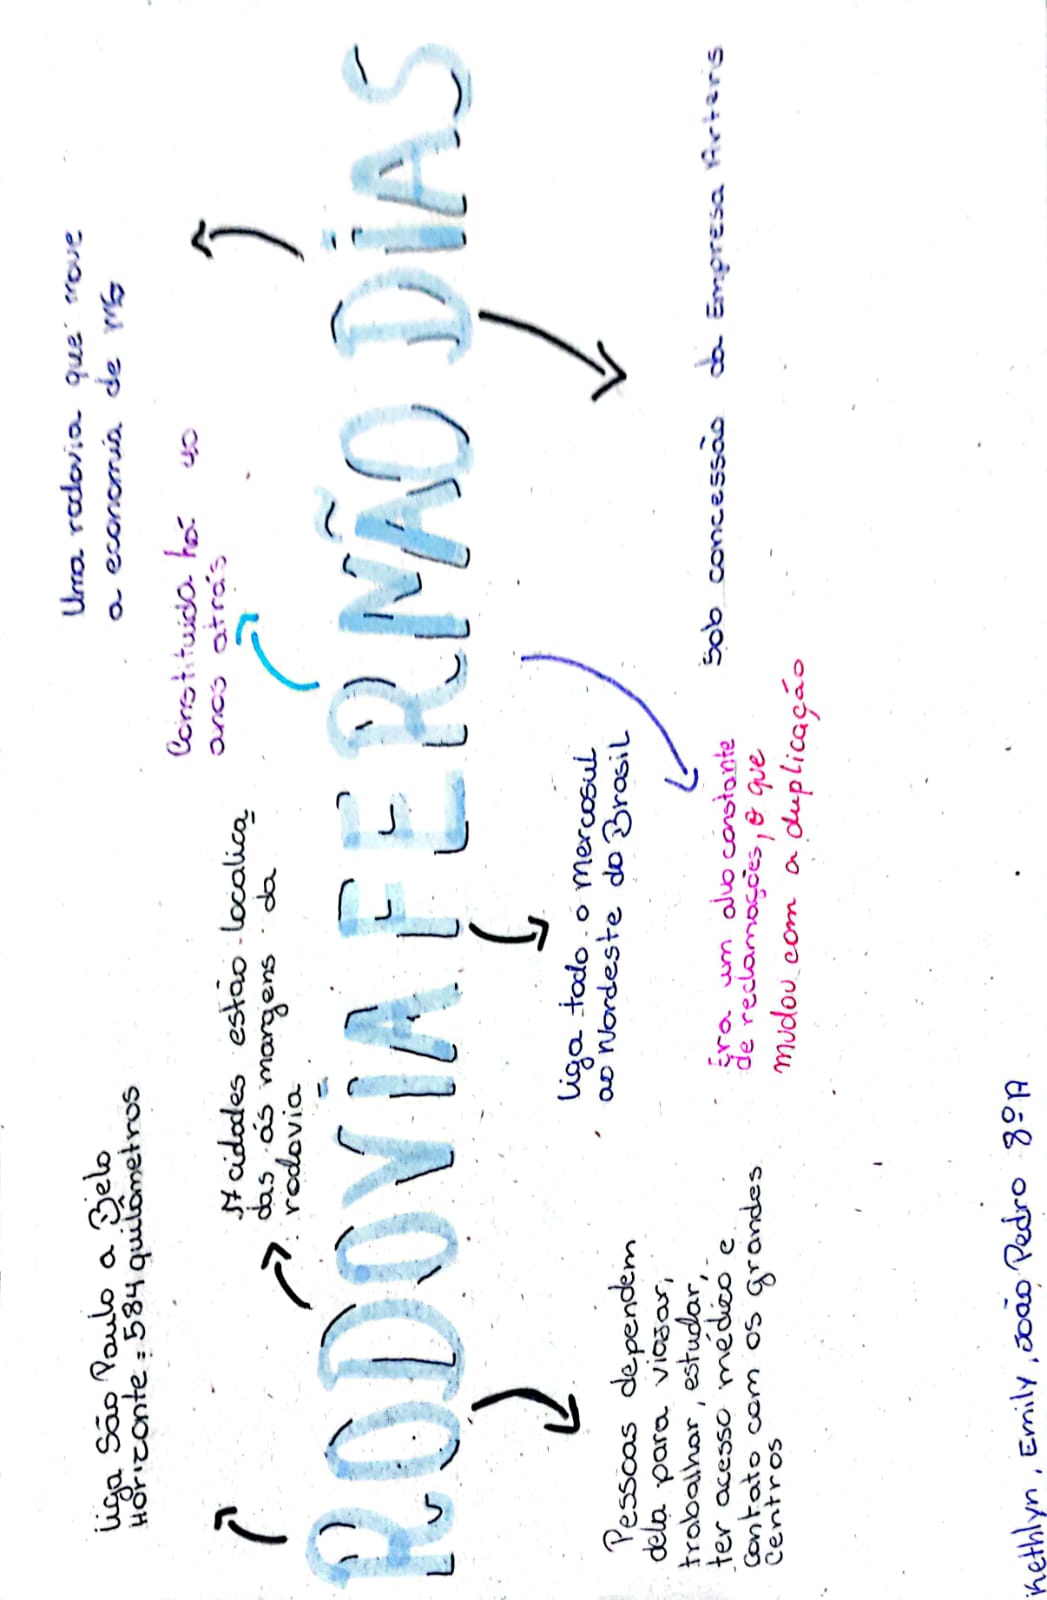 Liga São Paulo a Belo
Horizonte = 584 quilômetros
17 cidades estão localica
das ás margens da
rodovia
Constituída há 40
anos atrás
Uma rodovia que move
a economia de MG
RODOVIA FERNÃO DIAS
Pessoas dependem
dela para viajar,
trabalhar, estudar,
ter acesso médico e
contato com os grandes
centros
Liga todo o mercosul
ao Nordeste do Brasil
Era um alvo constante
de reclamações, o que
mudou com a duplicação
Sob concessão da Empresa Arteris
Kethlyn, Emily, João Pedro 8º A